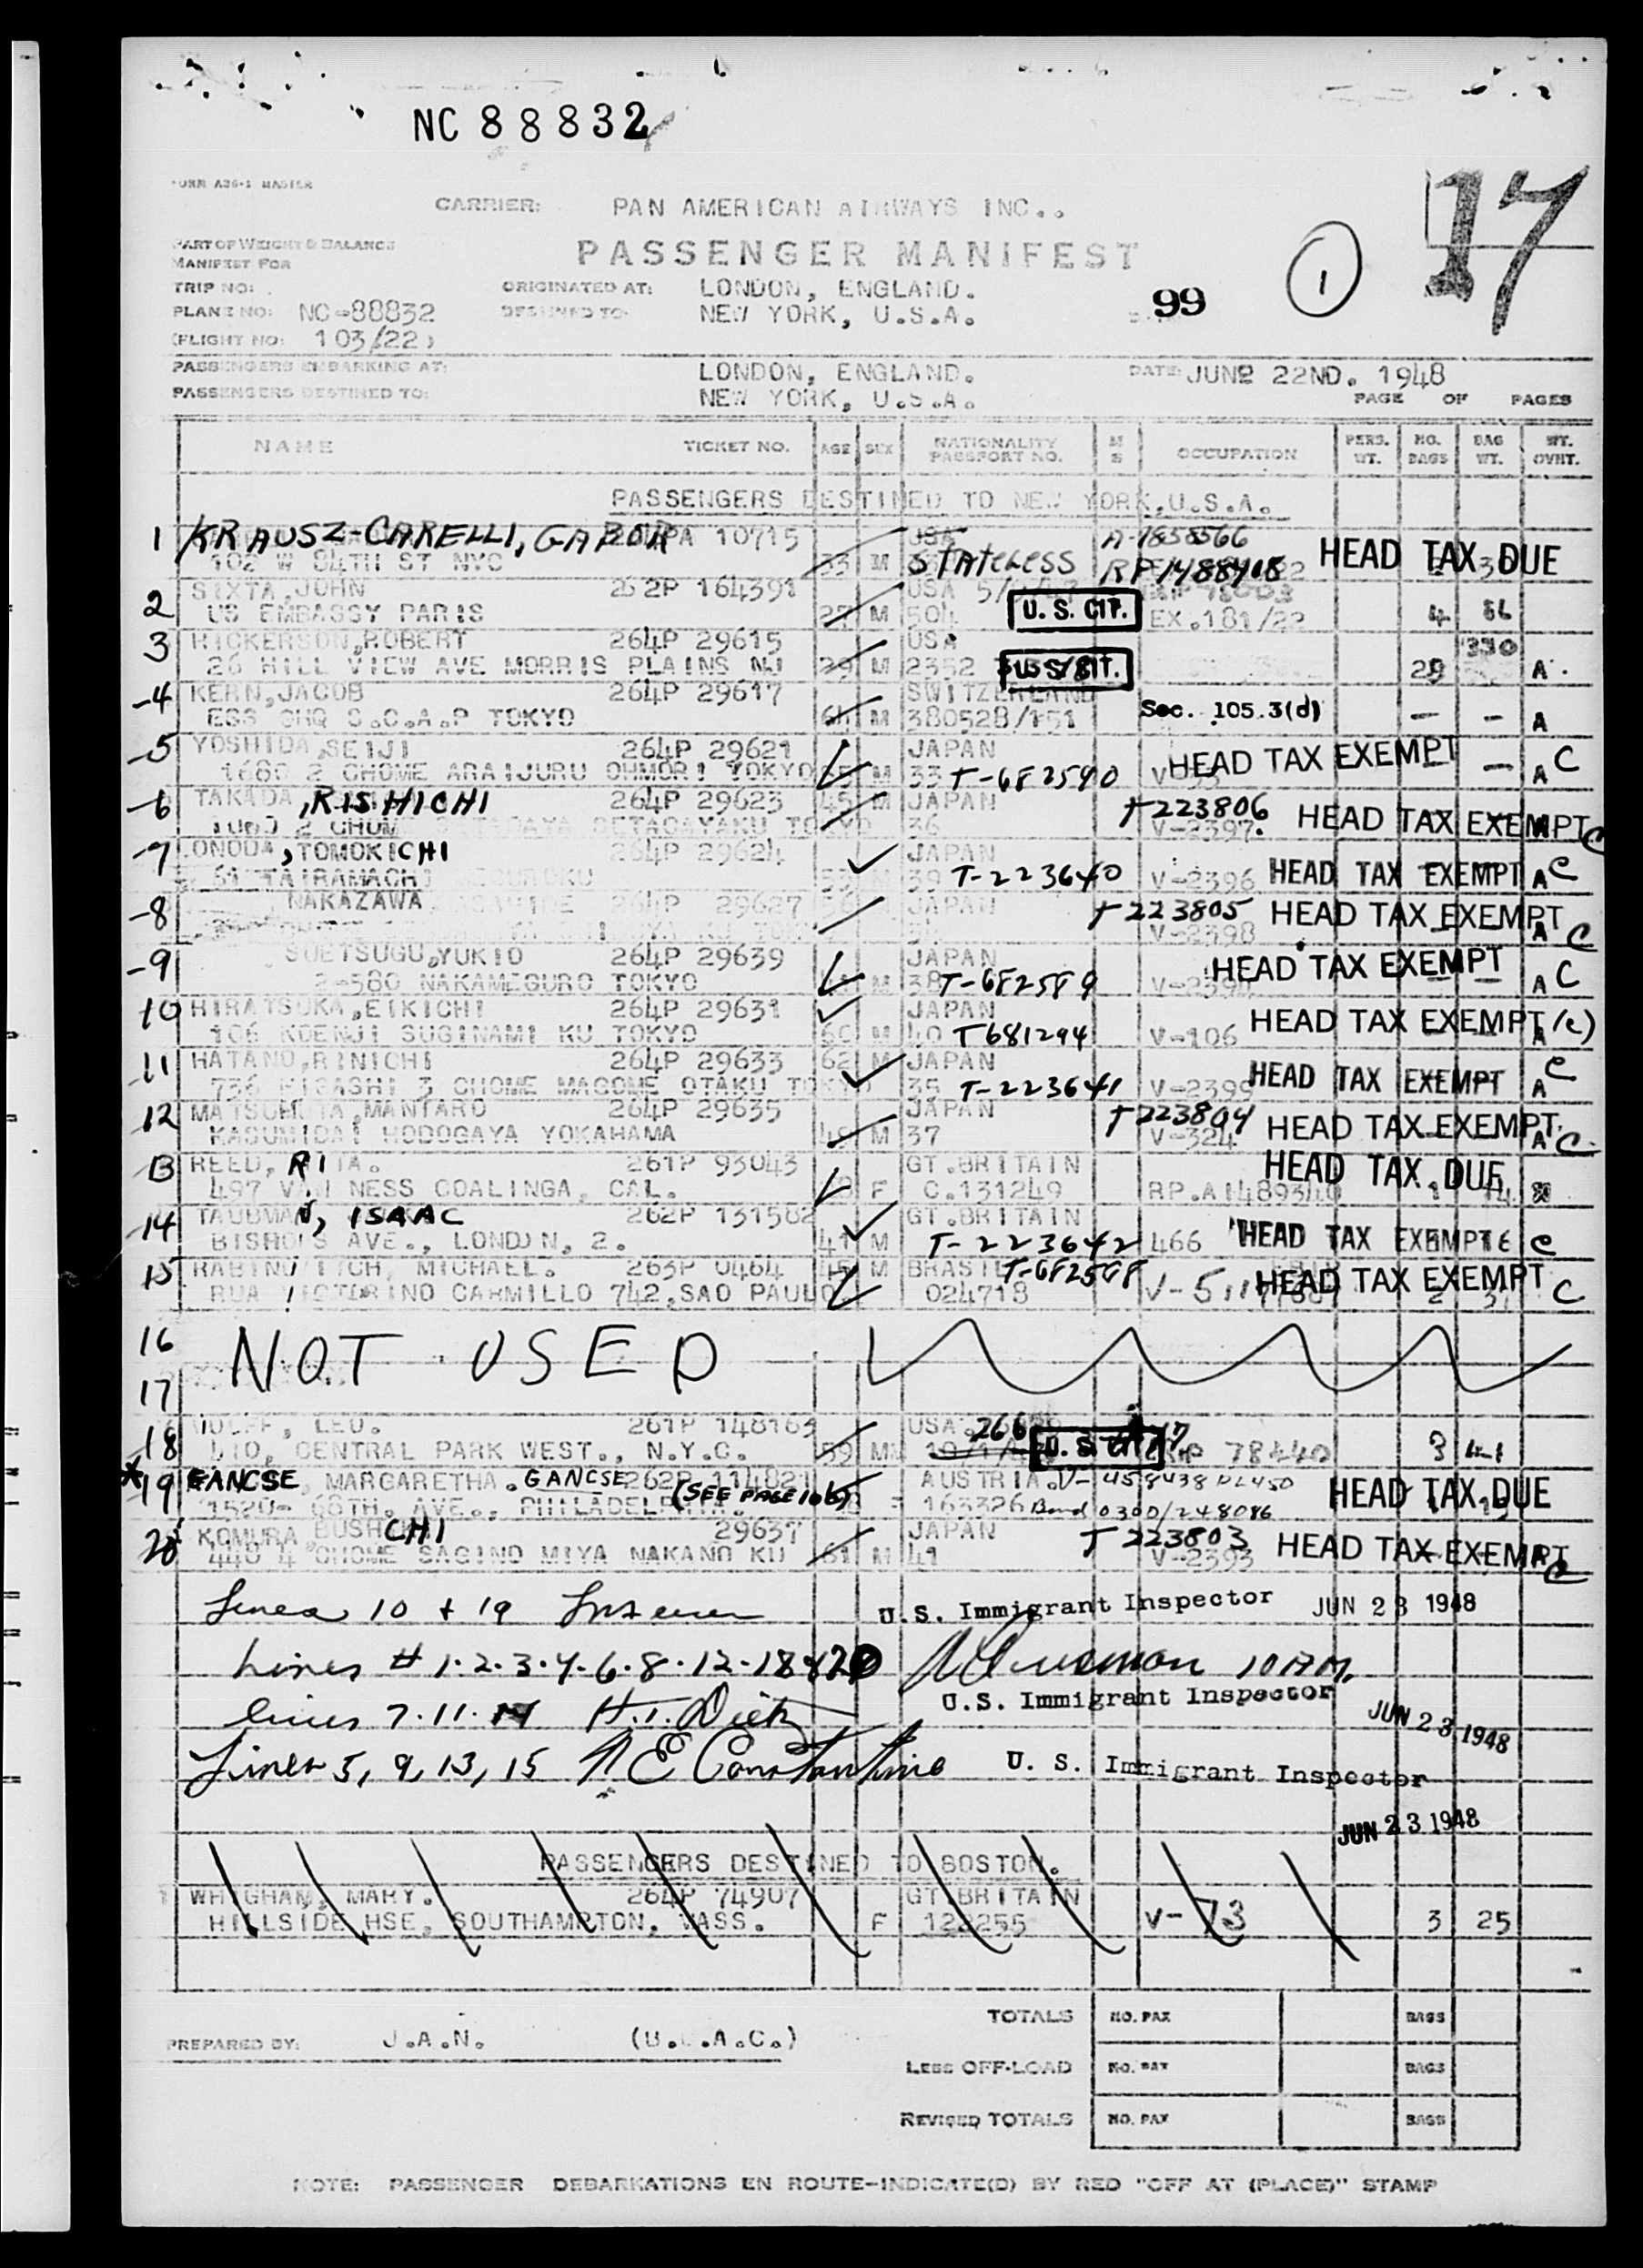 NC 88832
17
FORM A36-1 MASTER
CARRIER: PAN AMERICAN AIRWAYS INC..
PART OF WEIGHT & BALANCE
MANIFEST FOR
PASSENGER MANIFEST
1
TRIP NO: ORIGINATED AT: LONDON, ENGLAND.
99
PLANE NO: NC-88832 DESTINED TO: NEW YORK, U.S.A.
(FLIGHT NO: 103/22)
PASSENGERS EMBARKING AT: LONDON, ENGLAND. DATE: JUNE 22ND. 1948
PASSENGERS DESTINED TO: NEW YORK, U.S.A. PAGE OF PAGES
NAME TICKET NO. AGE SEX NATIONALITY PASSPORT NO. M S OCCUPATION PERS. WT. NO. BAGS BAG WT. WT. OVHT.
PASSENGERS DESTINED TO NEW YORK, U.S.A.
1 KRAUSZ-CARELLI, GABOR PA 10715 USA A-1858566
102 W 84TH ST NYC 33 M STATELESS RP 1488408 HEAD TAX DUE
2 SIXTA, JOHN 262P 164391 USA
US EMBASSY PARIS 27 M 504 U. S. CIT. EX.181/22 4
3 HICKERSON, ROBERT 264P 29615 USA 330
26 HILL VIEW AVE MORRIS PLAINS NJ 39 M 2352 U. S. CIT. 29 A.
4 KERN, JACOB 264P 29617 SWITZERLAND
ESS GHQ S.C.A.P TOKYO M 380528/151 Sec. 105.3(d) - - A
5 YOSHIDA, SEIJI 264P 29621 JAPAN HEAD TAX EXEMPT
1680 2 CHOME ARAIJUKU OHMORI TOKYO M 33 T-682590 - A C
6 TAKADA, RISHICHI 264P 29623 45 M JAPAN T223806
36 V-2397. HEAD TAX EXEMPT C
7 ONODA, TOMOKICHI 264P 29624 JAPAN
M 39 T-223640 V-2396 HEAD TAX EXEMPT A C
8 NAKAZAWA 264P 29627 JAPAN T223805 HEAD TAX EXEMPT
V-2398 A C
9 SUETSUGU, YUKIO 264P 29639 JAPAN HEAD TAX EXEMPT
2-580 NAKAMEGURO TOKYO M 38 T-682589 A C
10 HIRATSUKA, EIKICHI 264P 29631 JAPAN
106 KOENJI SUGINAMI KU TOKYO 60 M 40 T681294 V-106 HEAD TAX EXEMPT A (c)
11 HATANO, RINICHI 264P 29633 62 M JAPAN
736 HIGASHI 3 CHOME MAGOME OTAKU TOKYO 35 T-223641 V-2399 HEAD TAX EXEMPT A C
12 MATSUMOTA, MANTARO 264P 29635 JAPAN T223804
KASUMIDAI HODOGAYA YOKAHAMA 48 M 37 V-324 HEAD TAX EXEMPT A C
13 REED, RITA. 261P 93043 GT.BRITAIN HEAD TAX DUE
497 VAN NESS COALINGA, CAL. F C.131249
14 TAUBMAN, ISAAC 262P 131502 GT.BRITAIN
BISHOPS AVE., LONDON, 2. 41 M T-223642 466 HEAD TAX EXEMPT C
15 RABINOVITCH, MICHAEL. 263P 0464 45 M BRASIL T-682588
RUA VICTORINO CARMILLO 742, SAO PAULO. 024718 HEAD TAX EXEMPT C
16
NOT USED
17
18 WOLFF, LEO. 261P 148163 USA. 266
CENTRAL PARK WEST., N.Y.C. 59 M U. S. CIT. 78440 3 41
*19 GANCSE, MARGARETHA. GANCSE 262P 114821 AUSTRIA.
1520- 68TH. AVE., PHILADELPHIA. (SEE PAGE 10) 163326 Bond 0300/248086 HEAD TAX DUE
20 KOMURA BUSHICHI 29637 JAPAN T 223803
440 4 CHOME SAGINO MIYA NAKANO KU 51 M 41 V-2393 HEAD TAX EXEMPT C
Lines 10 + 19 U.S. Immigrant Inspector JUN 23 1948
Lines # 1.2.3.4.6.8.12.18 & 20 10 A.M.
U.S. Immigrant Inspector
lines 7.11.14 H.T. Dietz JUN 23 1948
Lines 5, 9, 13, 15 N E Constantine U. S. Immigrant Inspector
JUN 23 1948
PASSENGERS DESTINED TO BOSTON.
1 WHIGHAM, MARY. 264P 74907 GT.BRITAIN
HILLSIDE HSE, SOUTHAMPTON, MASS. F 123255 V-73 3 25
TOTALS NO. PAX BAGS
PREPARED BY: J.A.N.
LESS OFF-LOAD NO. PAX BAGS
REVISED TOTALS NO. PAX BAGS
NOTE: PASSENGER DEBARKATIONS EN ROUTE-INDICATE(D) BY RED "OFF AT (PLACE)" STAMP